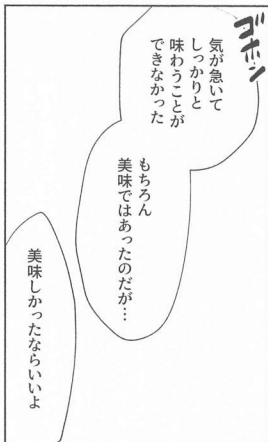 ゴホン
気が急いて
しっかりと
味わうことが
できなかった
もちろん
美味ではあったのだが…
美味しかったならいいよ